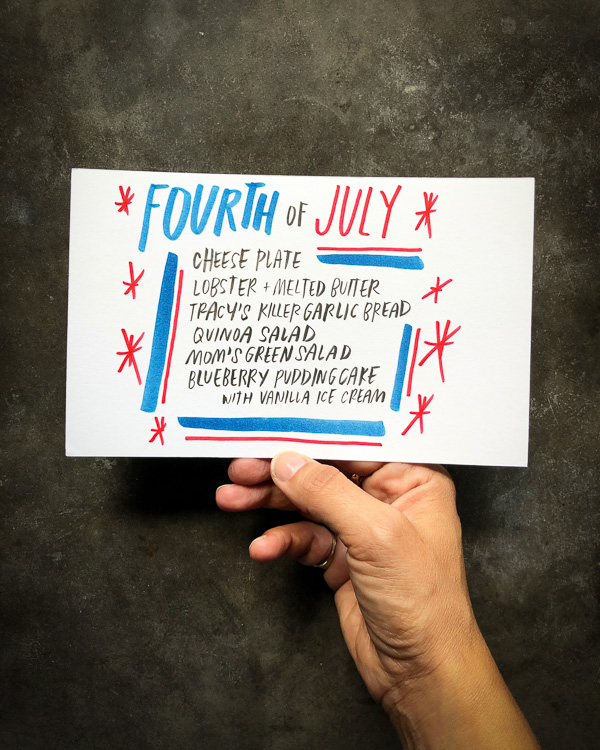 FOURTH OF JULY
CHEESE PLATE
LOBSTER + MELTED BUTTER
TRACY'S KILLER GARLIC BREAD
QUINOA SALAD
MOM'S GREEN SALAD
BLUEBERRY PUDDING CAKE
WITH VANILLA ICE CREAM